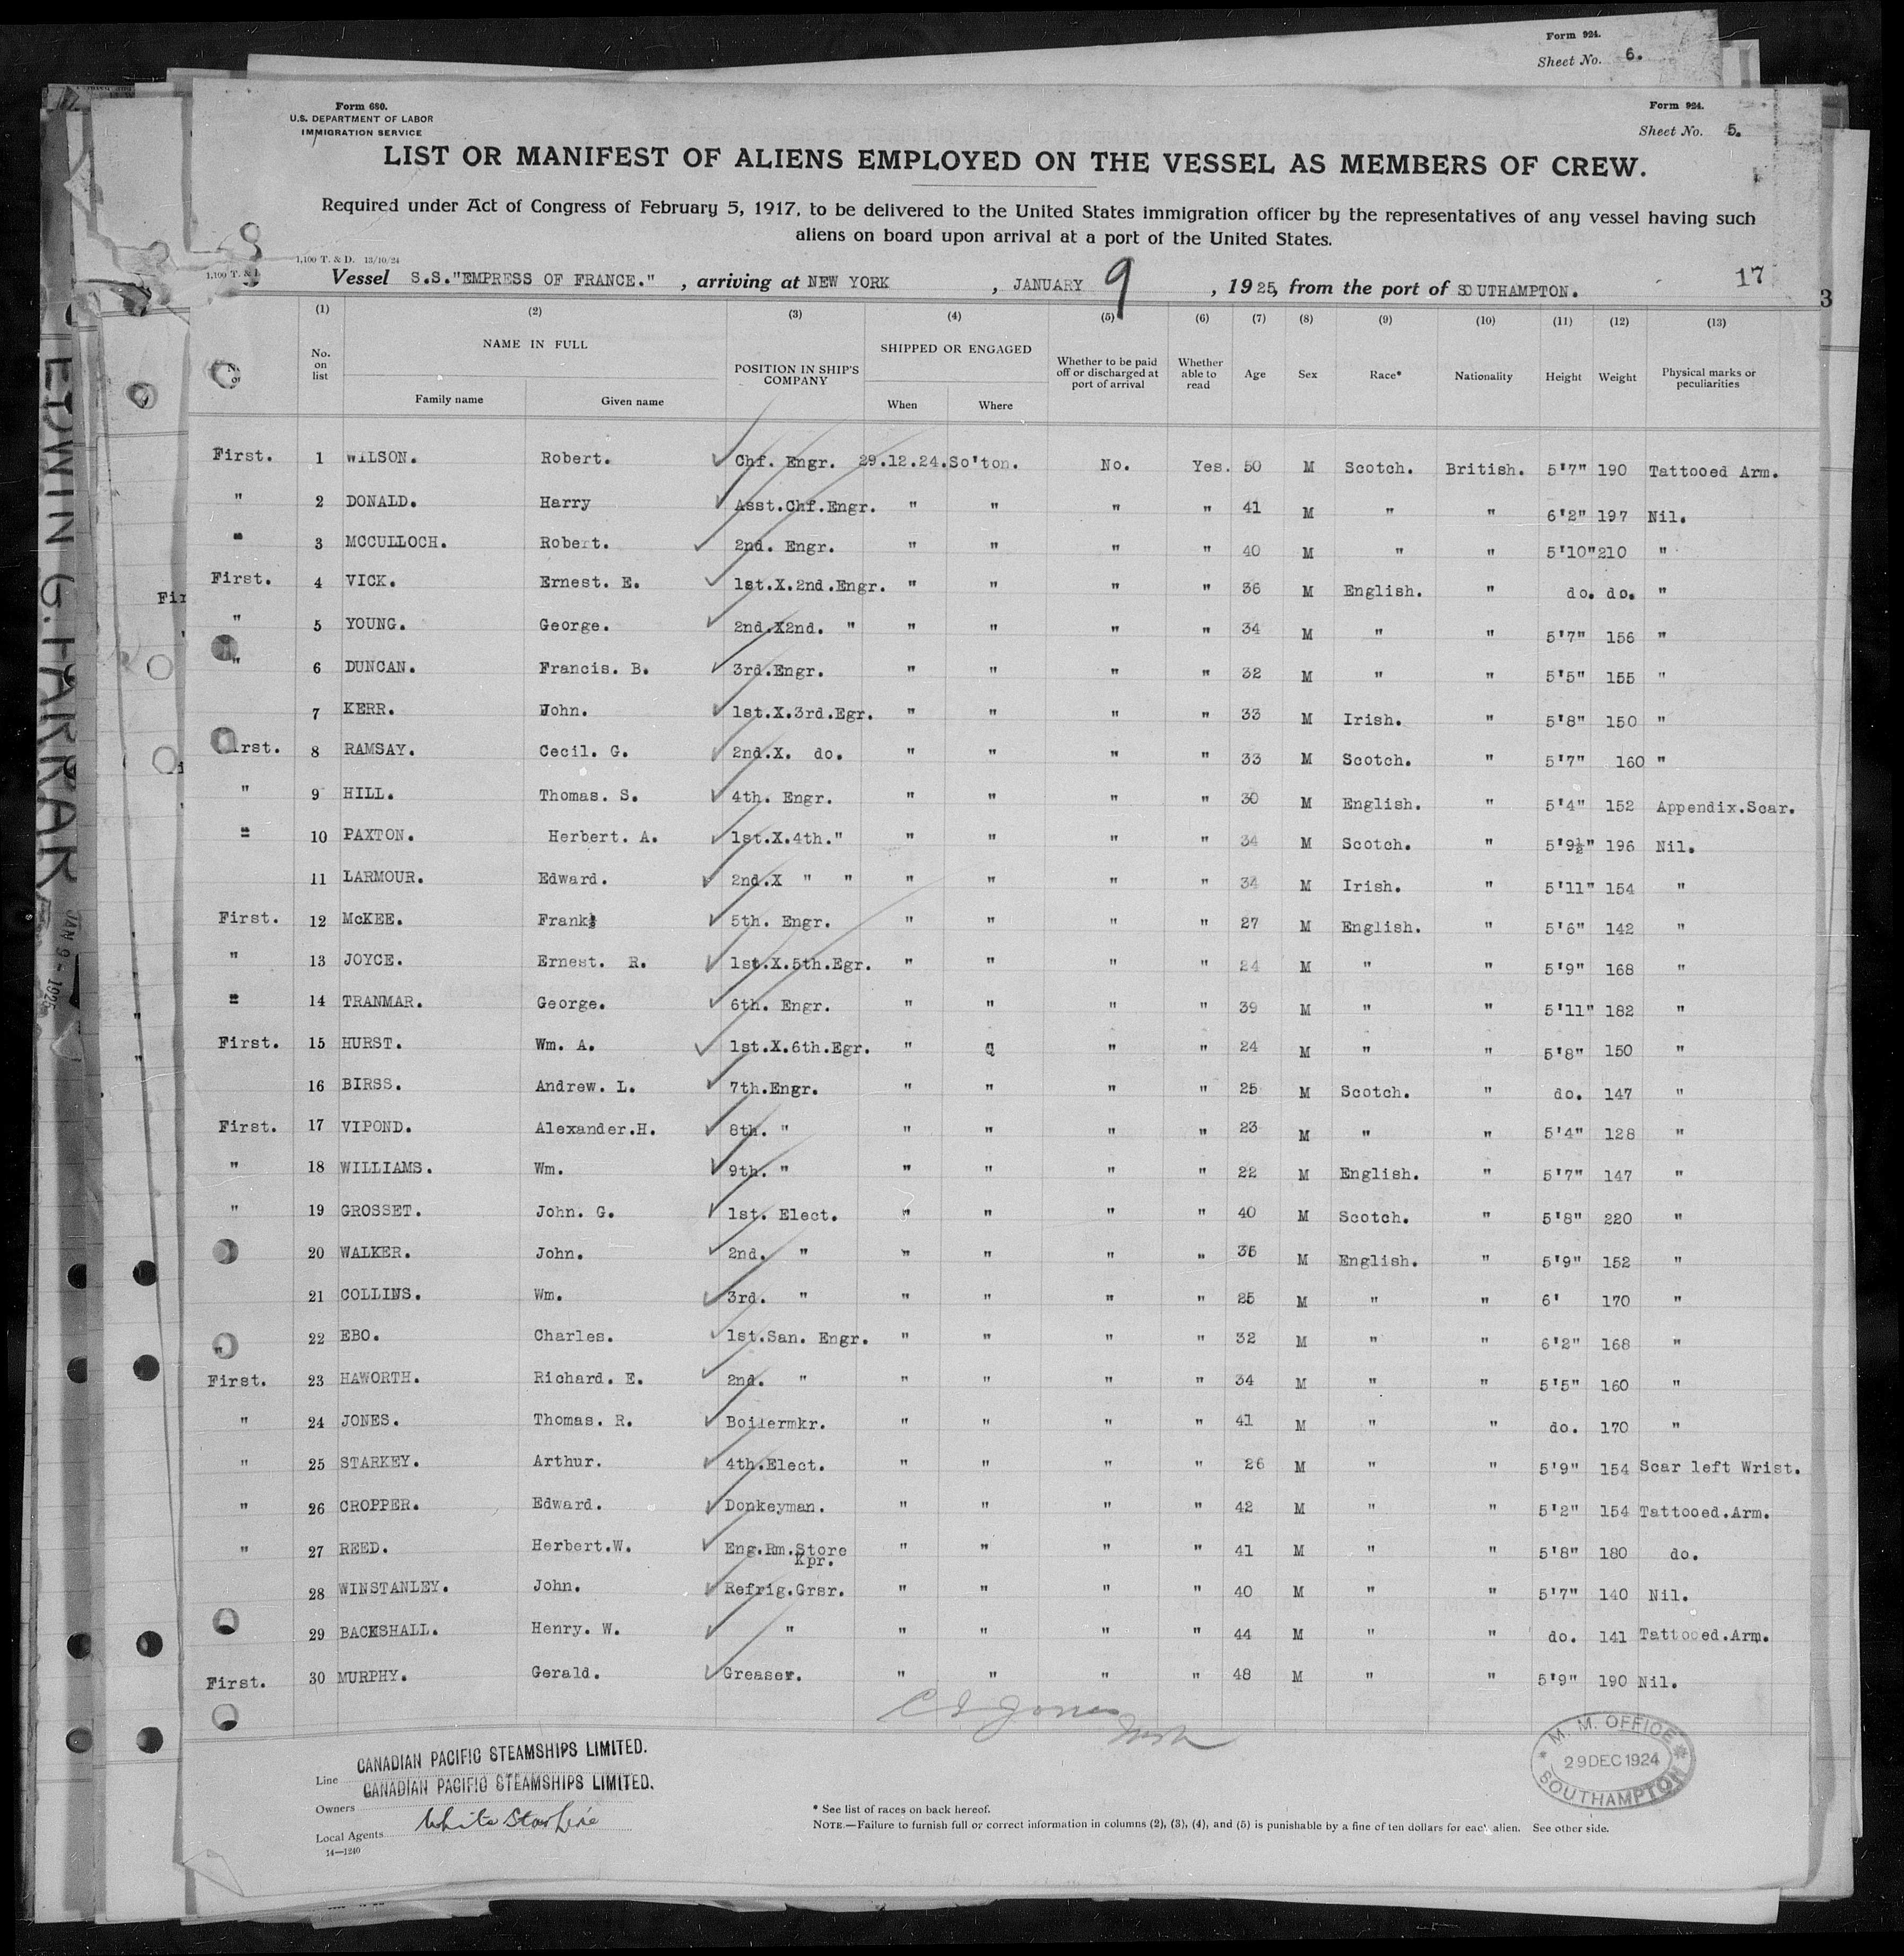 Form 924.
Sheet No. 6.
Form 680.
U.S. DEPARTMENT OF LABOR
IMMIGRATION SERVICE
Form 924.
Sheet No. 5.
LIST OR MANIFEST OF ALIENS EMPLOYED ON THE VESSEL AS MEMBERS OF CREW.
Required under Act of Congress of February 5, 1917, to be delivered to the United States immigration officer by the representatives of any vessel having such
aliens on board upon arrival at a port of the United States.
1,100 T. & D. 13/10/24
1,100 T. &
Vessel S.S."EMPRESS OF FRANCE.", arriving at NEW YORK, JANUARY 9, 1925, from the port of SOUTHAMPTON.
17
3
(1) (2) (3) (4) (5) (6) (7) (8) (9) (10) (11) (12) (13)
No. on list NAME IN FULL Family name Given name POSITION IN SHIP'S COMPANY SHIPPED OR ENGAGED When Where Whether to be paid off or discharged at port of arrival Whether able to read Age Sex Race* Nationality Height Weight Physical marks or peculiarities
First. 1 WILSON. Robert. Chf. Engr. 29.12.24. So'ton. No. Yes. 50 M Scotch. British. 5'7" 190 Tattooed Arm.
" 2 DONALD. Harry Asst.Chf.Engr. " " " " 41 M " " 6'2" 197 Nil.
" 3 MCCULLOCH. Robert. 2nd. Engr. " " " " 40 M " " 5'10" 210 "
First. 4 VICK. Ernest. E. 1st.X.2nd.Engr. " " " " 36 M English. " do. do. "
" 5 YOUNG. George. 2nd.X2nd. " " " " " 34 M " " 5'7" 156 "
" 6 DUNCAN. Francis. B. 3rd.Engr. " " " " 32 M " " 5'5" 155 "
7 KERR. John. 1st.X.3rd.Egr. " " " " 33 M Irish. " 5'8" 150 "
irst. 8 RAMSAY. Cecil. G. 2nd.X. do. " " " " 33 M Scotch. " 5'7" 160 "
" 9 HILL. Thomas. S. 4th. Engr. " " " " 30 M English. " 5'4" 152 Appendix.Scar.
" 10 PAXTON. Herbert. A. 1st.X.4th." " " " " 34 M Scotch. " 5'9½" 196 Nil.
11 LARMOUR. Edward. 2nd.X " " " " " " 34 M Irish. " 5'11" 154 "
First. 12 McKEE. Frank. 5th. Engr. " " " " 27 M English. " 5'6" 142 "
" 13 JOYCE. Ernest. R. 1st.X.5th.Egr. " " " " 24 M " " 5'9" 168 "
" 14 TRANMAR. George. 6th. Engr. " " " " 39 M " " 5'11" 182 "
First. 15 HURST. Wm. A. 1st.X.6th.Egr. " " " " 24 M " " 5'8" 150 "
16 BIRSS. Andrew. L. 7th.Engr. " " " " 25 M Scotch. " do. 147 "
First. 17 VIPOND. Alexander.H. 8th. " " " " " 23 M " " 5'4" 128 "
" 18 WILLIAMS. Wm. 9th. " " " " " 22 M English. " 5'7" 147 "
" 19 GROSSET. John. G. 1st. Elect. " " " " 40 M Scotch. " 5'8" 220 "
20 WALKER. John. 2nd. " " " " " 35 M English. " 5'9" 152 "
21 COLLINS. Wm. 3rd. " " " " " 25 M " " 6' 170 "
" 22 EBO. Charles. 1st.San. Engr. " " " " 32 M " " 6'2" 168 "
First. 23 HAWORTH. Richard. E. 2nd. " " " " " 34 M " " 5'5" 160 "
" 24 JONES. Thomas. R. Boilermkr. " " " " 41 M " " do. 170 "
" 25 STARKEY. Arthur. 4th.Elect. " " " " 26 M " " 5'9" 154 Scar left Wrist.
" 26 CROPPER. Edward. Donkeyman. " " " " 42 M " " 5'2" 154 Tattooed.Arm.
" 27 REED. Herbert.W. Eng.Rm.Store Kpr. " " " " 41 M " " 5'8" 180 do.
28 WINSTANLEY. John. Refrig.Grsr. " " " " 40 M " " 5'7" 140 Nil.
29 BACKSHALL. Henry. W. " " " " " 44 M " " do. 141 Tattooed.Arm.
First. 30 MURPHY. Gerald. Greaser. " " " " 48 M " " 5'9" 190 Nil.
Jones
M. M. OFFICE
29 DEC 1924
SOUTHAMPTON
Line CANADIAN PACIFIC STEAMSHIPS LIMITED.
Owners CANADIAN PACIFIC STEAMSHIPS LIMITED.
Local Agents White Star Line
14—1240
* See list of races on back hereof.
NOTE.—Failure to furnish full or correct information in columns (2), (3), (4), and (5) is punishable by a fine of ten dollars for each alien. See other side.
EDWIN G. FARRAR
JAN 9 - 1925